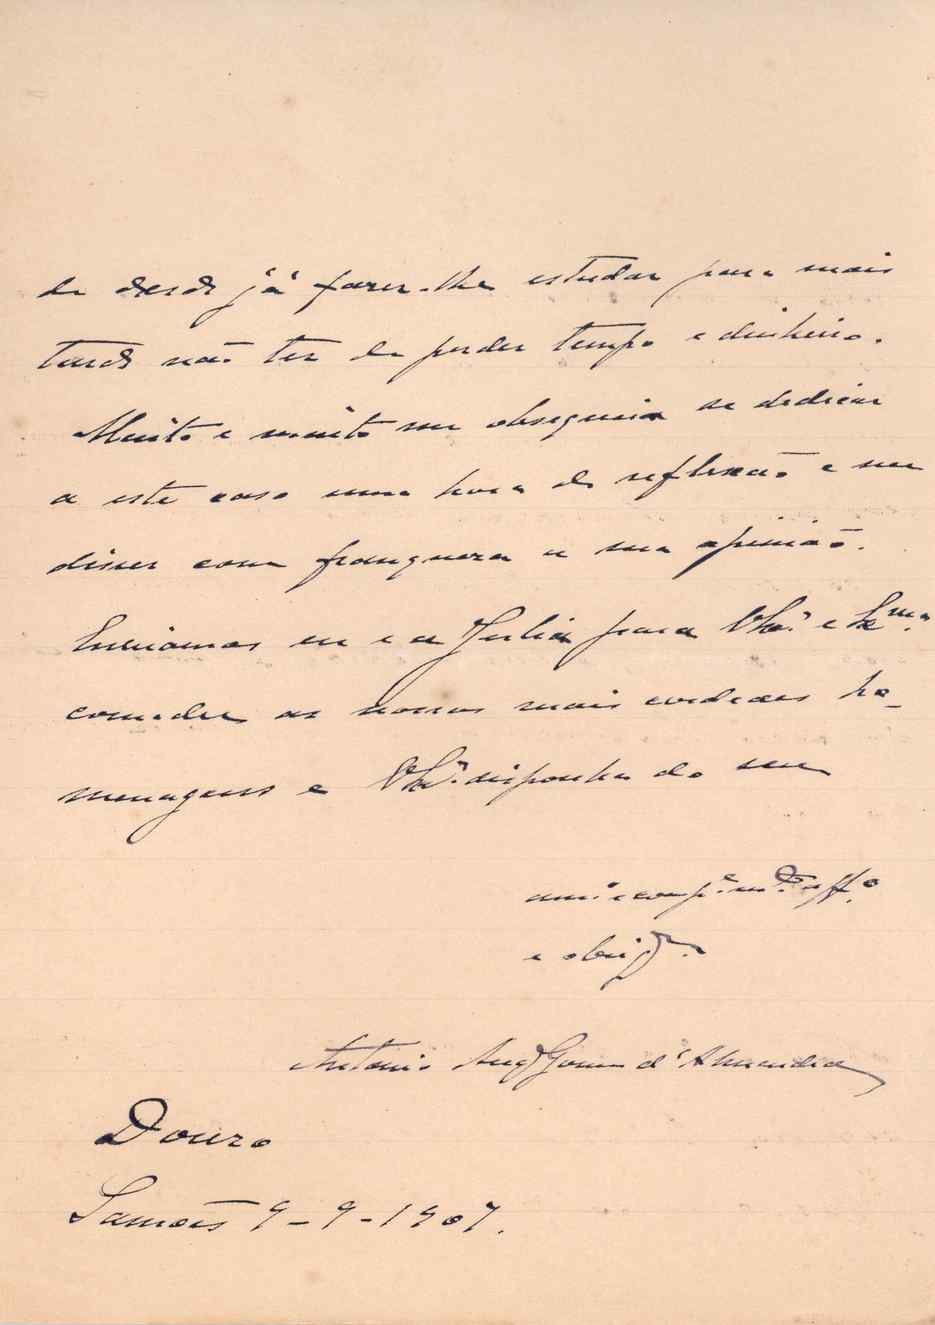 de desde já fazer-lhe estudar para mais
tarde não ter de perder tempo e dinheiro.
Muito e muito me obsequeia se dedicar
a este caso uma hora de reflexão e me
disser com franqueza a sua opinião.
Enviamos eu e a Julia para V. Ex.ª e Ex.mas
as nossas mais cordeaes ho-
menagens e V. Ex.ª disponha do seu
am.º e comp.e m.to aff.º
e obrig.º
Antonio Aug.to Gomes d'Almendra
Douro
Samões 9-9-1907.